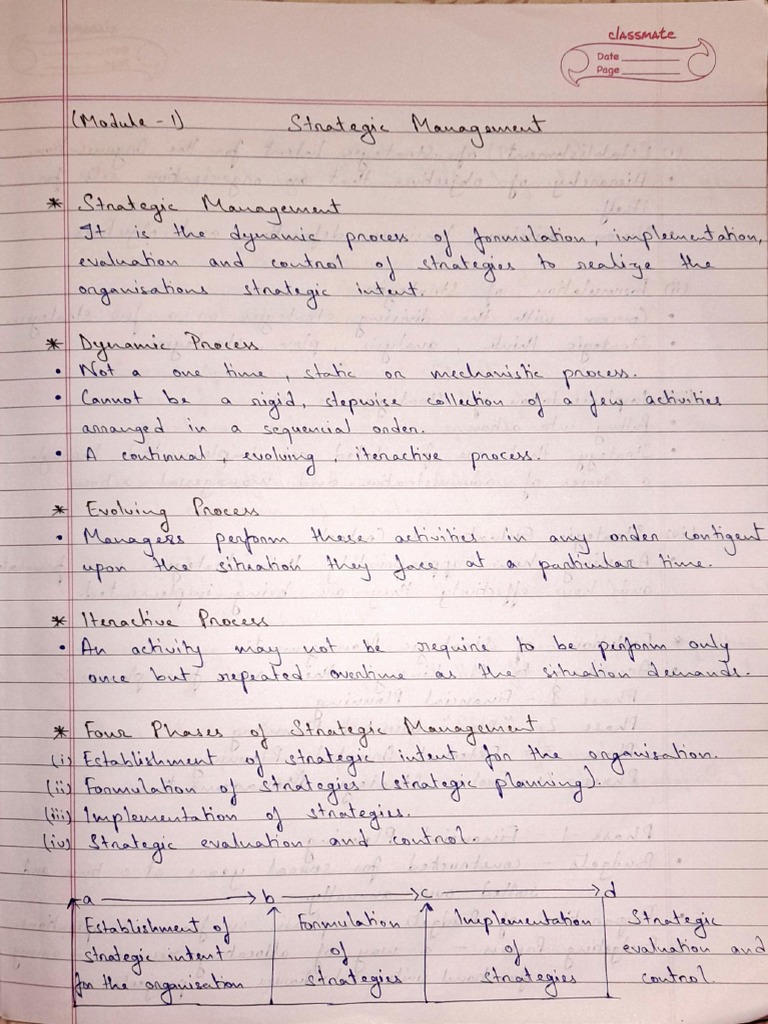 classmate
Date
Page
(Module - 1) Strategic Management
* Strategic Management
It is the dynamic process of formulation, implementation,
evaluation and control of strategies to realize the
organisations strategic intent.
* Dynamic Process
• Not a one time, static or mechanistic process.
• Cannot be a rigid, stepwise collection of a few activities
arranged in a sequencial order.
• A continual, evolving, iteractive process.
* Evolving Process
• Managers perform these activities in any order contigent
upon the situation they face at a particular time.
* Iteractive Process
• An activity may not be require to be perform only
once but repeated overtime as the situation demands.
* Four Phases of Strategic Management
(i) Establishment of strategic intent for the organisation.
(ii) Formulation of strategies (strategic planning).
(iii) Implementation of strategies.
(iv) Strategic evaluation and control.
a → b → c → d
Establishment of Formulation Implementation Strategic
strategic intent of of evaluation and
for the organisation strategies strategies control.